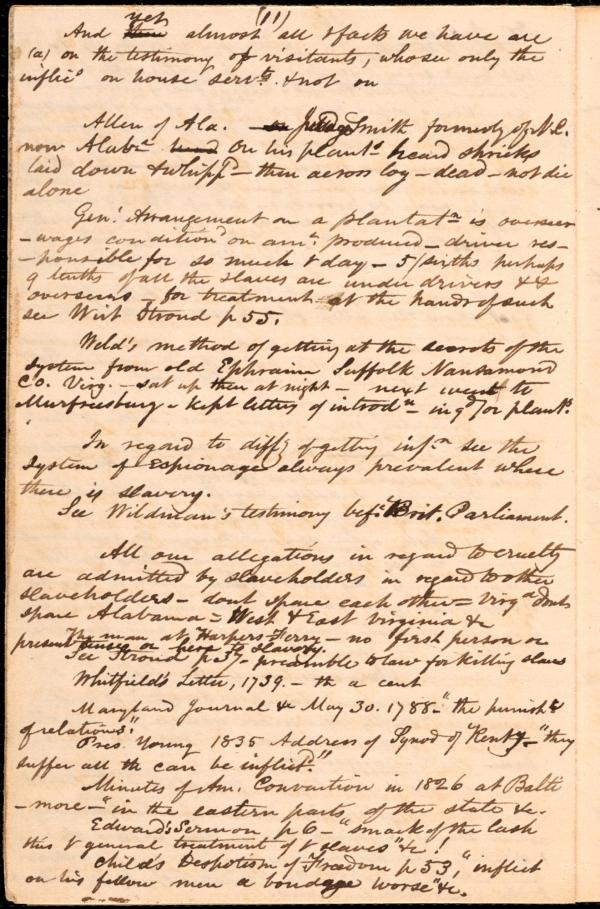 (11)
yet
And then almost all & facts we have are
(a) on the testimony of visitants, who see only the
inflicn on house servts & not on
Allen of Ala. Judge Smith formerly of N.C.
now Alaba on his plantn heard shrieks
laid down & whippd - then across log - dead - not die
alone
Genl Arrangement on a plantatn is overseer
- wages conditiond on amt produced - driver res-
-ponsible for so much & day - 5/sixths perhaps
9 tenths of all the slaves are under drivers &
overseers - for treatment at the hands of such
see Wirt Stroud p 55.
Weld's method of getting at the secrets of the
system from old Ephraim Suffolk Nansamond
Co. Virg. - sat up then at night - next went to
Murfreesburg - kept letters of introdn - for plants
In regard to diffy of getting infn see the
system of espionage always prevalent where
there is slavery.
See Wildman's testimony befe Brit. Parliament.
All our allegations in regard to cruelty
are admitted by slaveholders in regard to other
slaveholders - dont spare each other = Virga dont
spare Alabama = West & East virginia &c
The man at Harpers Ferry - no first person or
present tense or here to slavery.
See Stroud p 37 - preamble to law for killing slaves
Whitfield's Letter, 1739. - th a cent
Maryland Journal &c May 30. 1788 - "the punisht
of relations."
Pres. Young 1835 Address of Synod of Kenty - "they
suffer all th can be inflictd"
Minutes of Am. Convention in 1826 at Balti
-more - "in the eastern parts of the state &c.
Edward's Sermon p 6 - "smack of the lash
this & general treatment of & slaves" &c!
Child's Despotism of Freedom p 53, "inflict
on his fellow men a bondage worse" &c.